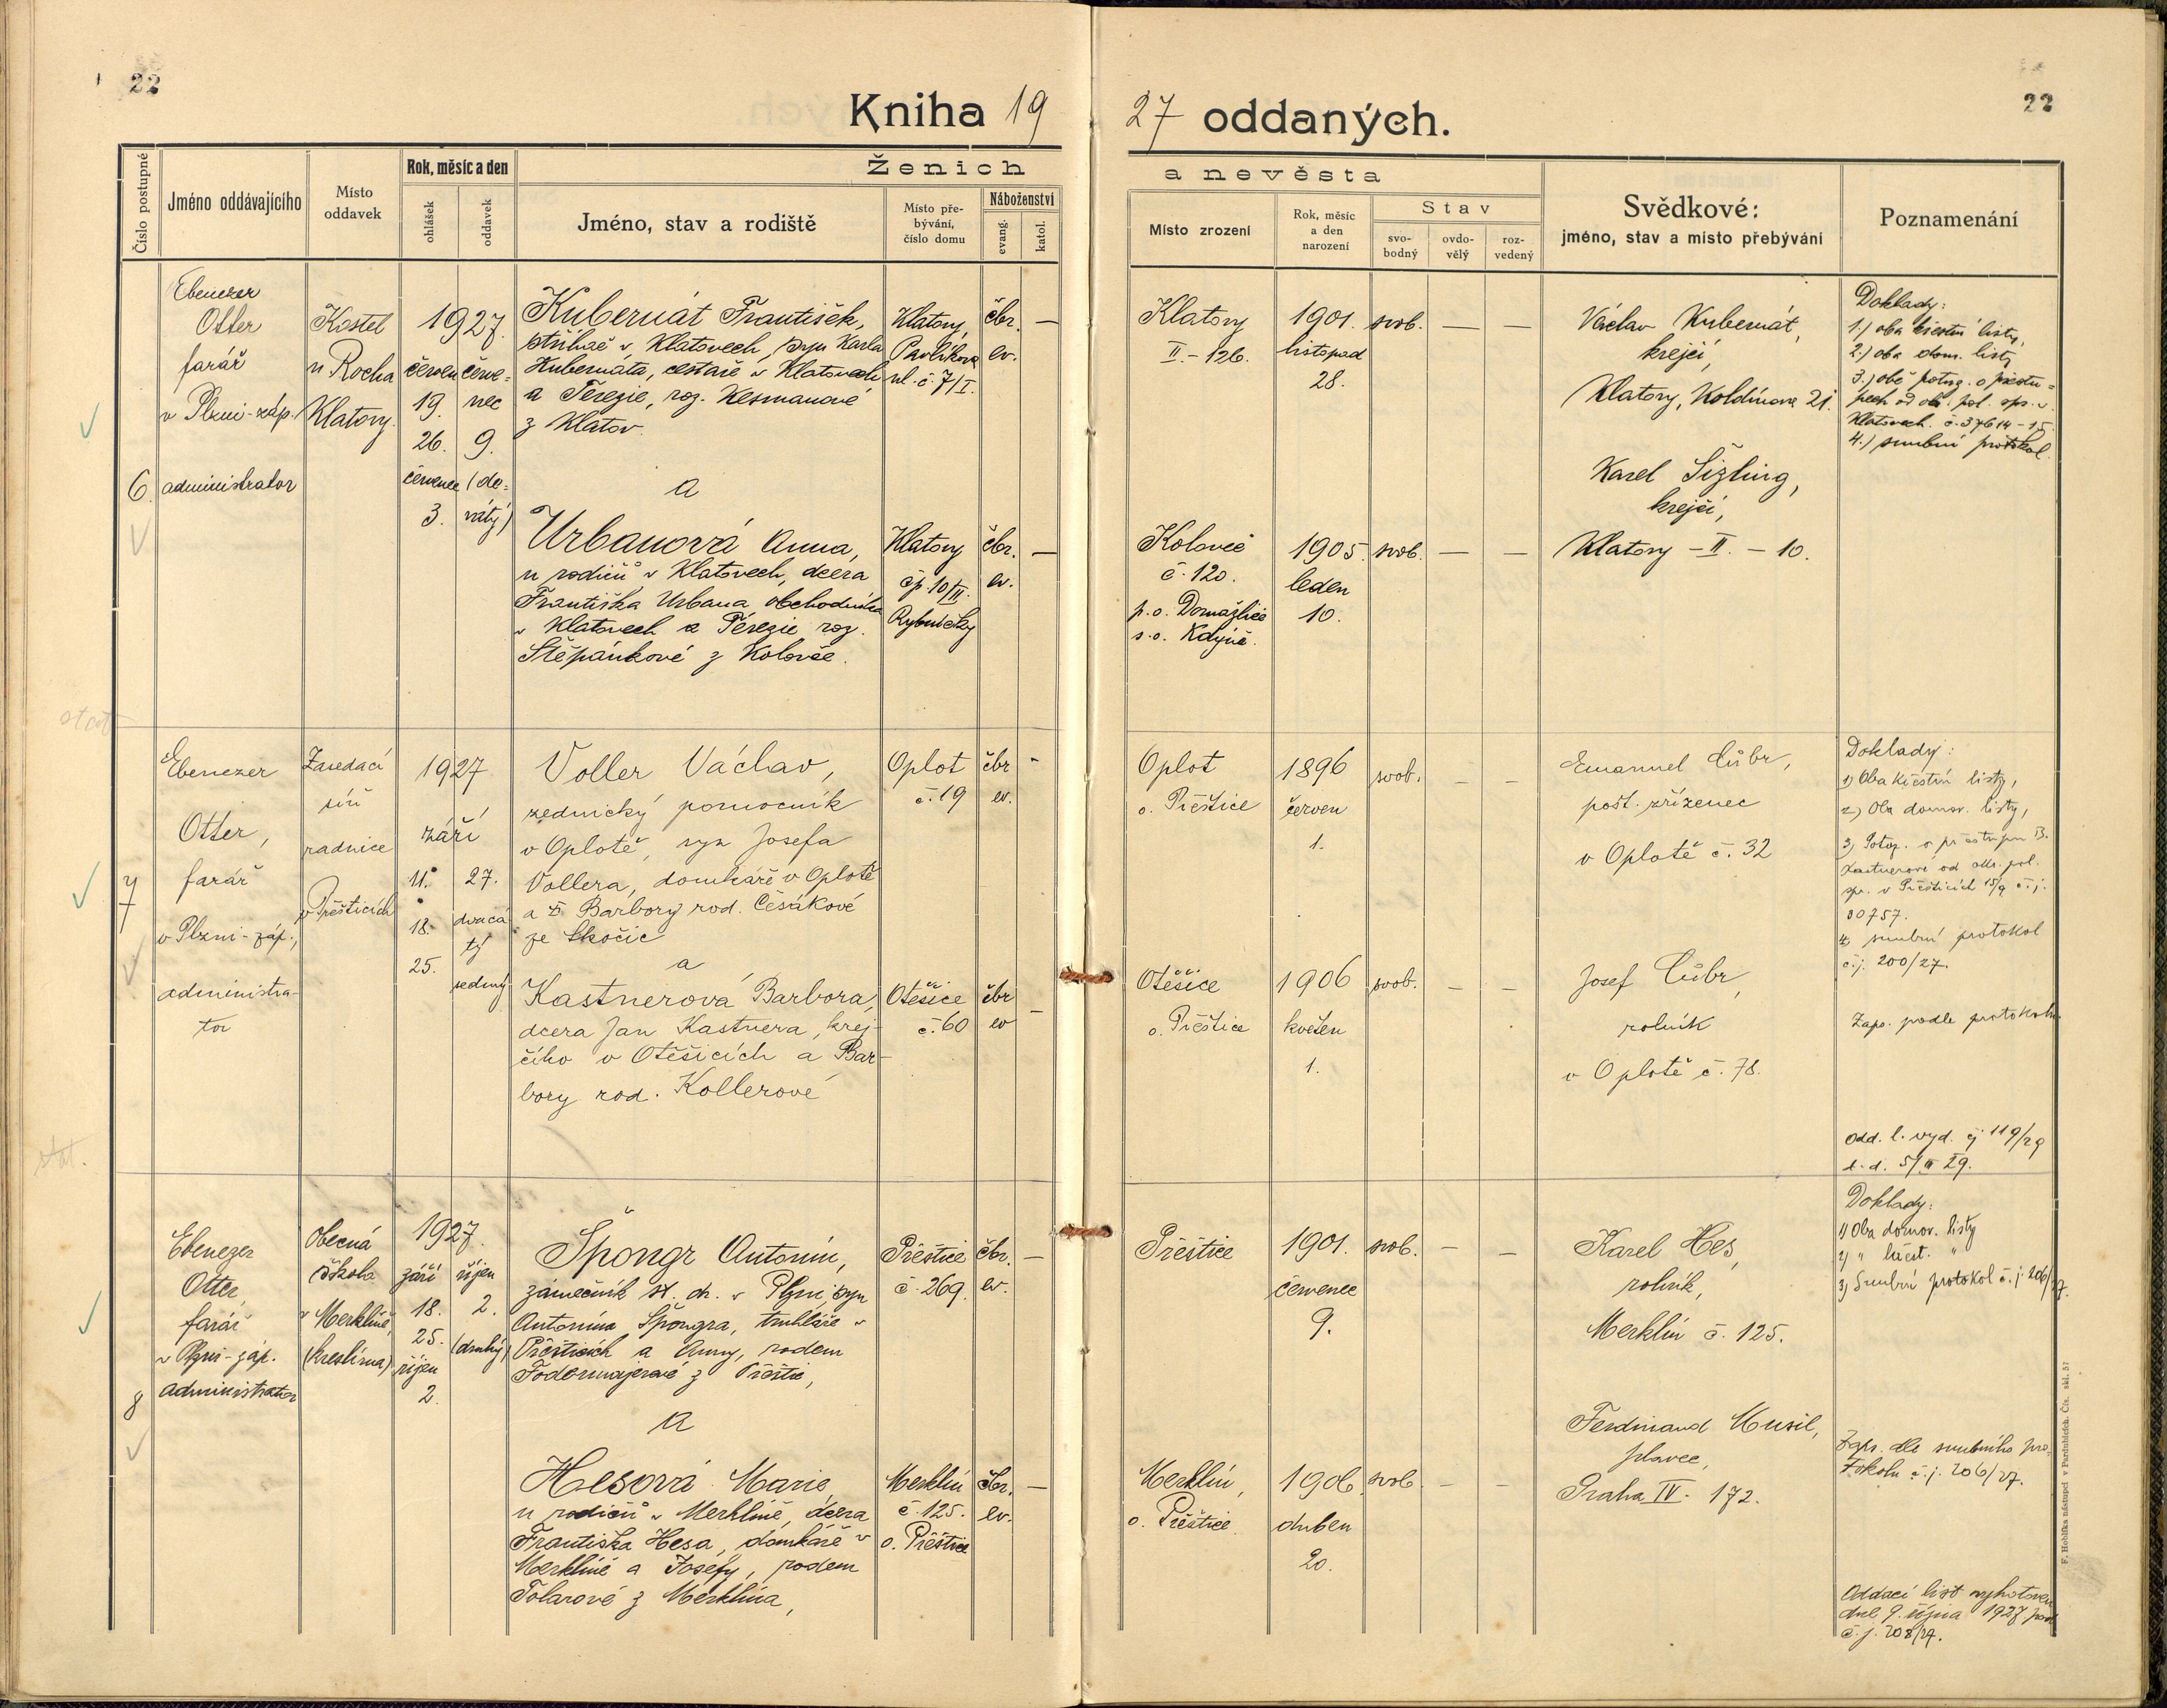 22
Kniha 19
27 oddaných.
22
Číslo postupné
Jméno oddávajícího
Místo
oddavek
Rok, měsíc a den
ohlášek
oddavek
Ženich
Jméno, stav a rodiště
Místo pře-
bývání,
číslo domu
Náboženství
evang.
katol.
a nevěsta
Místo zrození
Rok, měsíc
a den
narození
Stav
svo-
bodný
ovdo-
vělý
roz-
vedený
Svědkové:
jméno, stav a místo přebývání
Poznamenání
6.
Ebenezer
Otter
farář
v Plzni-záp.
administrator
Kostel
u Rocha
Klatovy.
1927.
červen
19.
26.
červenec
3.
červe-
nec
9.
(de-
vátý)
Kubernát František,
střihač v Klatovech, syn Karla
Kubernáta, cestáře v Klatovech
a Terezie, roz. Kesmanové
z Klatov
a
Urbanová Anna,
u rodičů v Klatovech, dcera
Františka Urbana obchodníka
v Klatovech a Terezie roz.
Štěpánkové z Kolovče.
Klatovy,
Pavlíkova
ul. č. 7/I.
čbr.
ev.
—
Klatovy
čp. 10/II.
Rybníčky
čbr.
ev.
—
Klatovy
II. - 126.
1901.
listopad
28.
svob.
—
—
Koloveč
č. 120.
p. o. Domažlice
s. o. Kdyně.
1905
leden
10.
svob.
—
—
Václav Kubernát,
krejčí,
Klatovy, Koldinova 21.
Karel Šizling,
krejčí,
Klatovy - II. - 10.
Doklady:
1.) oba křestní listy,
2.) oba dom. listy
3.) obě potvrz. o přestu-
pech od okr. pol. spr. v
Klatovech. č. 37614-15
4.) snubní protokol.
7
Ebenezer
Otter,
farář
v Plzni-záp.,
administra-
tor
Zasedací
síň
radnice
v Přešticích
1927
září
11.
18.
25.
27.
dvacá
tý
sedmý
Voller Václav,
zednický pomocník
v Oplotě, syn Josefa
Vollera, domkáře v Oplotě
a Barbory rod. Češákové
ze Skočic
a
Kastnerová Barbora,
dcera Jan Kastnera, krej-
čího v Otěšicích a Bar-
bory rod. Kollerové
Oplot
č. 19
čbr
ev.
-
Otěšice
č. 60
čbr
ev
-
Oplot
o. Přeštice
1896
červen
1.
svob.
-
-
Otěšice
o. Přeštice
1906
květen
1.
svob.
-
-
Emanuel Cůbr,
pošt. zřízenec
v Oplotě č. 32
Josef Cůbr,
rolník
v Oplotě č. 78.
Doklady:
1) Oba křestní listy,
2) Oba domov. listy,
3) Potvrz. o přestupu B.
Kastnerové od okr. pol.
spr. v Přešticích 15/9 č. j.
30757.
4) snubní protokol
č. j. 200/27.
Zaps. podle protokolu
Odd. l. vyd. čj 119/29
d. d. 5/III 29.
stat.
8
Ebenezer
Otter,
farář
v Plzni-záp.
administrator
Obecná
škola
v Merklíně,
(kreslírna)
1927.
září
18.
25.
říjen
2.
říjen
2.
(druhý)
Špongr Antonín,
zámečník st. dr. v Plzni, syn
Antonína Špongra, truhláře v
Přešticích a Anny, rodem
Fodermajerové z Přeštic,
a
Hesová Marie,
u rodičů v Merklíně, dcera
Františka Hesa, domkáře v
Merklíně a Josefy, rodem
Tolarové z Merklína,
Přeštice
č. 269.
čbr.
ev.
—
Merklín
č. 125.
o. Přeštice
čbr.
ev.
—
Přeštice
1901.
červenec
9.
svob.
-
-
Merklín,
o. Přeštice
1906.
duben
20.
svob.
-
-
Karel Hes,
rolník,
Merklín č. 125.
Ferdinand Musil,
plavec,
Praha IV. 172.
Doklady:
1) Oba domov. listy
2) " křest. "
3) Snubní protokol č. j. 206/27.
Zaps. dle snubního pro-
tokolu č. j. 206/27.
Oddací list vyhotoven
dne 9. října 1927 pod
č. j. 208/27.
F. Hoblíka nástupci v Pardubicích. Čís. skl. 57